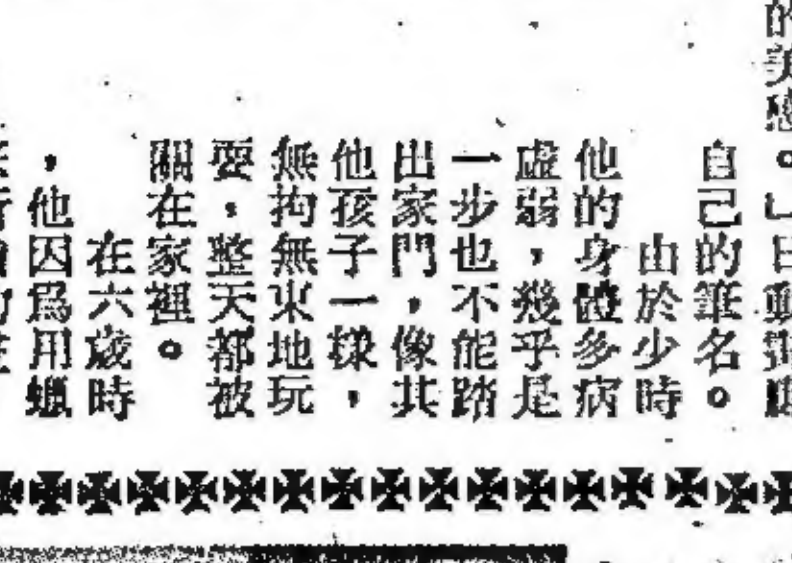 的美感。」
自己的筆名。
由於少時
他的身體多病
虛弱，幾乎是
一步也不能踏
出家門，像其
他孩子一樣，
無拘無束地玩
耍，整天都被
關在家裡。
在六歲時
，他因爲用蠟